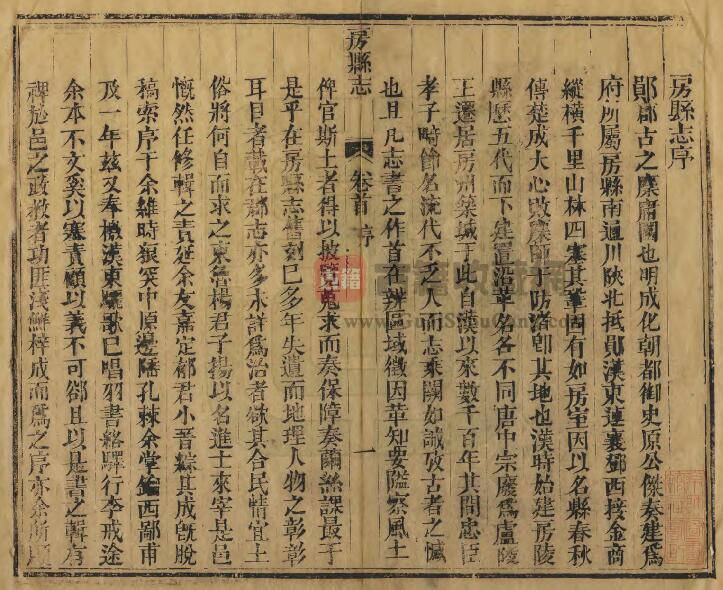 房縣志序
鄖郡古之麇庸國也明成化朝都御史原公傑奏建為
府所屬房縣南通川陝北抵鄖漢東連襄鄧西接金商
縱橫千里山林四塞其鞏固有如房室因以名縣春秋
傳楚成大心敗麇師于防渚卽其地也漢時始建房陵
縣歷五代而下建置沿革名各不同唐中宗廢為廬陵
王遷居房州築城于此自漢以來數千百年其間忠臣
孝子時節名流代不乏人而志乘闕如誠攷古者之憾
也且凡志書之作首在辨區域徵因革知要隘察風土
房縣志
卷首
序
一
俾官斯土者得以披覽蒐求而奏保障奏繭絲課最于
是乎在房縣志舊刻已多年失遺而地理人物之彰彰
耳目者載在郡志亦多未詳為治者欲其合民情宜土
俗將何自而求之東魯楊君子揚以名進士來宰是邑
慨然任修輯之責延余友嘉定郁君小晉綜其成旣脫
稿索序于余維時狼突中原邊陲孔棘余堂綸西鄙甫
及一年茲又奉檄漢東驪歌已唱羽書絡驛行李戒途
余本不文奚以塞責顧以義不可郤且以是書之輯有
裨於邑之政教者功匪淺鮮梓成而為之序亦余所